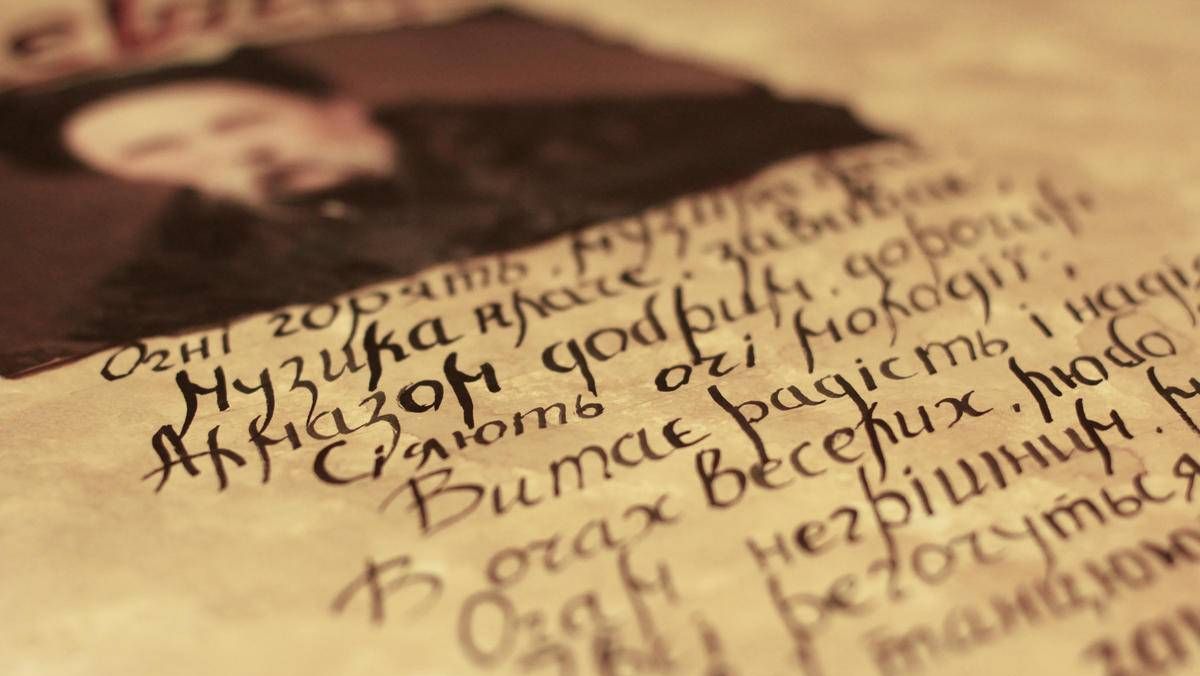 Огні горять . музика
Музика плаче . завиває ,
Алмазом добрим . дорогим
Сіяють очі молодії . ,
Витає радість і надія
В очах веселих . любо
Очам негрішним .
всі регочуться
танцюю